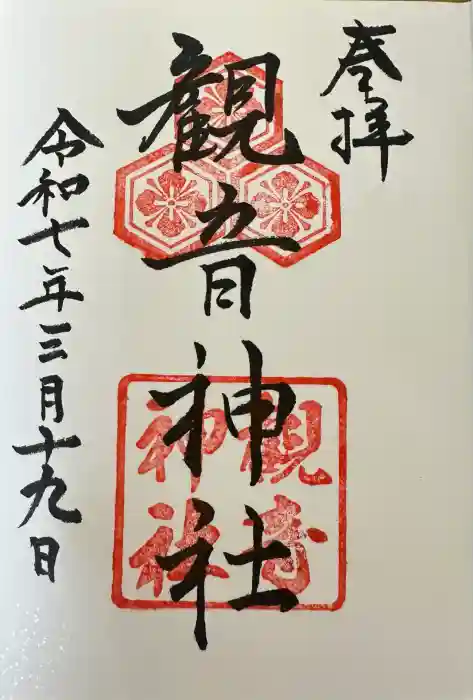 奉拝
観音神社
令和七年三月十九日
観音
神社